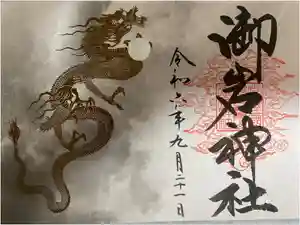 御岩神社
令和六年九月二十一日